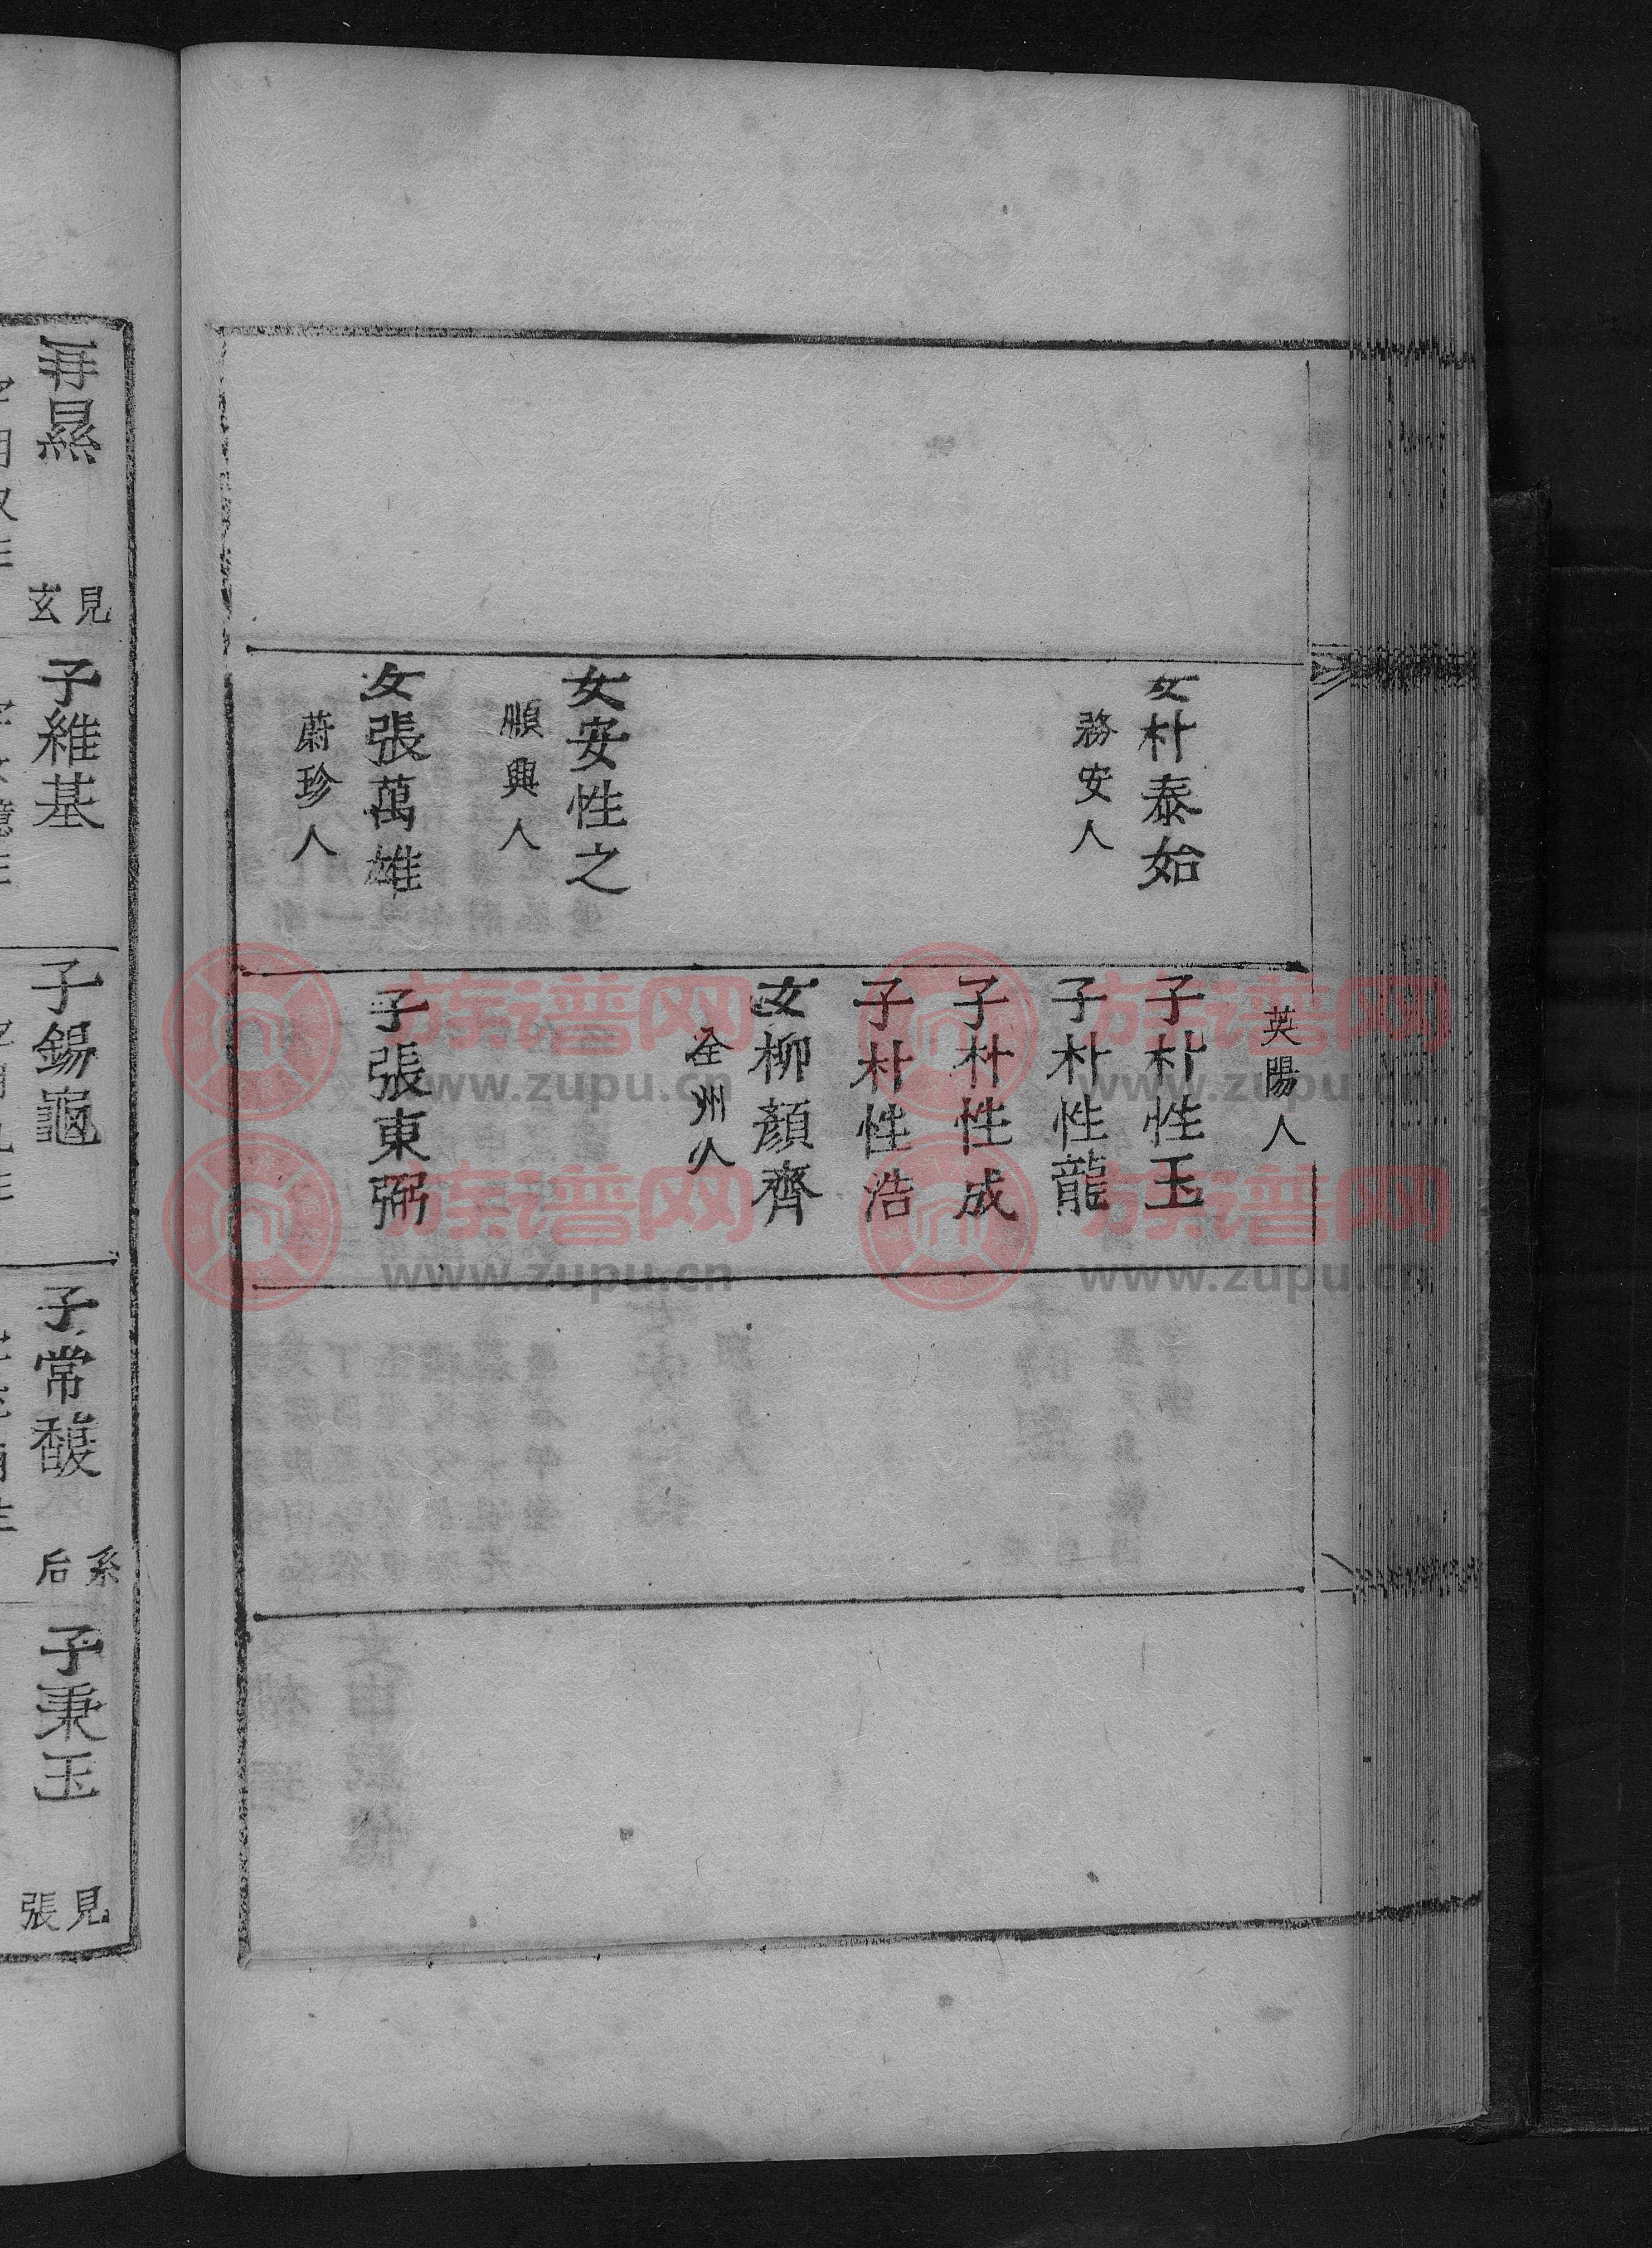 女朴泰始
務安人
女安性之
順興人
女張萬雄
蔚珍人
英陽人
子朴性玉
子朴性龍
子朴性成
子朴性浩
女柳顔齊
全州人
子張東弼
再㬎
見
玄
子維基
子錫龜
子常馥
系
后
子秉玉
見
張
族谱网
www.zupu.cn
族谱网
www.zupu.cn
族谱网
www.zupu.cn
族谱网
www.zupu.cn